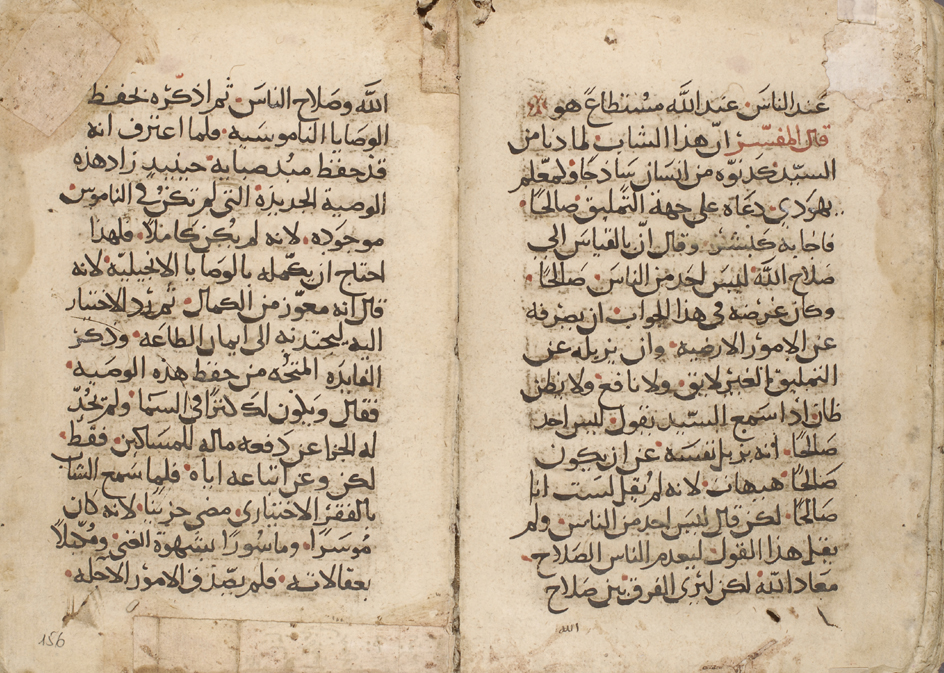 عند الناس عند الله مستطاعً هو
قال المفسّر انّ هذا الشاب لما دنا من
السيّد كدنوّه من انسان ساذجًا ولمعلم
يهودي دعاه على جهة التمليق صالحًا
فاجابه كبشر وقال انّ بالقياس الى
صلاح الله ليس احد من الناس صالحًا
وكان غرضه في هذا الجواب ان يصرفه
عن الامور الارضيه وان يزيله عن
التمليق الغير لايق ولا نافع ولا يظن
ظان اذا سمع السيّد يقول ليس احد
صالحًا انه يزيل نفسه عن ان يكون
صالحًا هيهات لانه لم يقل لست انا
صالحًا لكن قال ليس احد من الناس ولم
يقل هذا القول ليعدم الناس الصلاح
معاذ الله لكن ليرى الفرق بين صلاح
الله
الله وصلاح الناس ثم اذكره بحفظ
الوصايا الناموسيه فلما اعترف انه
قد حفظ منذ صبايه حينيد زاد هذه
الوصية الجديدة التي لم تكن في الناموس
موجوده لانه لم يكن كاملًا فلهذا
احتاج ان يكمله بالوصايا الانجيليّه لانه
قال انه معوّز من الكمال ثم ردّ الاختيار
اليه ليجتذبه الى ايمان الطاعه وذكر
الفايده من حفظ هذه الوصيه
فقال ويكون لك كنزًا في السما ولم يحدّ
له الجزا عن دفعه ماله للمساكين فقط
لكن وعن اتباعه اياه فلما سمع الشاب
بالفقر الاختياري مضى حزينًا لانه كان
موسرًا وماسورًا بشهوة الغنى
بعقالاته فلم يصدّق الامور الآجله
156